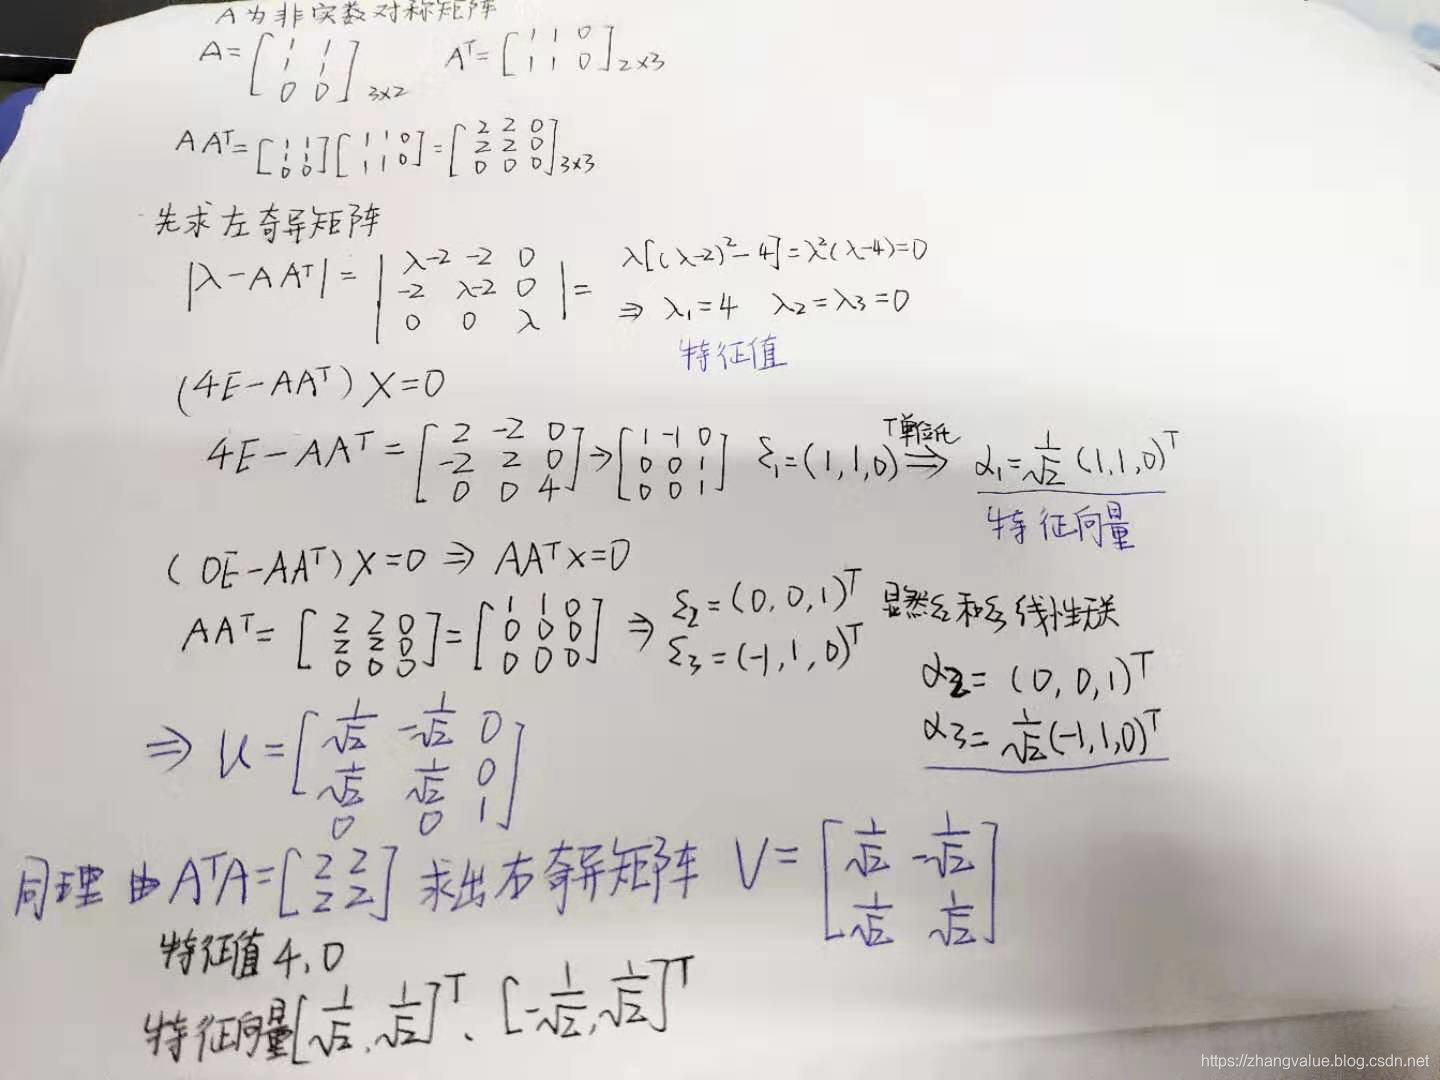 A为非实数对称矩阵
A=[1 1; 1 1; 0 0]3×2 Aᵀ=[1 1 0; 1 1 0]2×3
AAᵀ=[1 1; 1 1; 0 0][1 1 0; 1 1 0]=[2 2 0; 2 2 0; 0 0 0]3×3
先求左奇异矩阵
|λ-AAᵀ|=|λ-2 -2 0; -2 λ-2 0; 0 0 λ|= λ[(λ-2)²-4]=λ²(λ-4)=0
⇒ λ₁=4 λ₂=λ₃=0
特征值
(4E-AAᵀ)X=0
4E-AAᵀ=[2 -2 0; -2 2 0; 0 0 4]→[1 -1 0; 0 0 1; 0 0 1] ξ₁=(1,1,0)ᵀ 单位化 ⇒ α₁=1/√2 (1,1,0)ᵀ
特征向量
(0E-AAᵀ)X=0 ⇒ AAᵀx=0
AAᵀ=[2 2 0; 2 2 0; 0 0 0]=[1 1 0; 0 0 0; 0 0 0] ⇒ ξ₂=(0,0,1)ᵀ 显然ξ₂和ξ₃线性无关
ξ₃=(-1,1,0)ᵀ
α₂=(0,0,1)ᵀ
α₃=1/√2(-1,1,0)ᵀ
⇒ U=[1/√2 -1/√2 0; 1/√2 1/√2 0; 0 0 1]
同理 由AᵀA=[2 2; 2 2] 求出右奇异矩阵 V=[1/√2 -1/√2; 1/√2 1/√2]
特征值 4, 0
特征向量[1/√2, 1/√2]ᵀ、[-1/√2, 1/√2]ᵀ
https://zhangvalue.blog.csdn.net